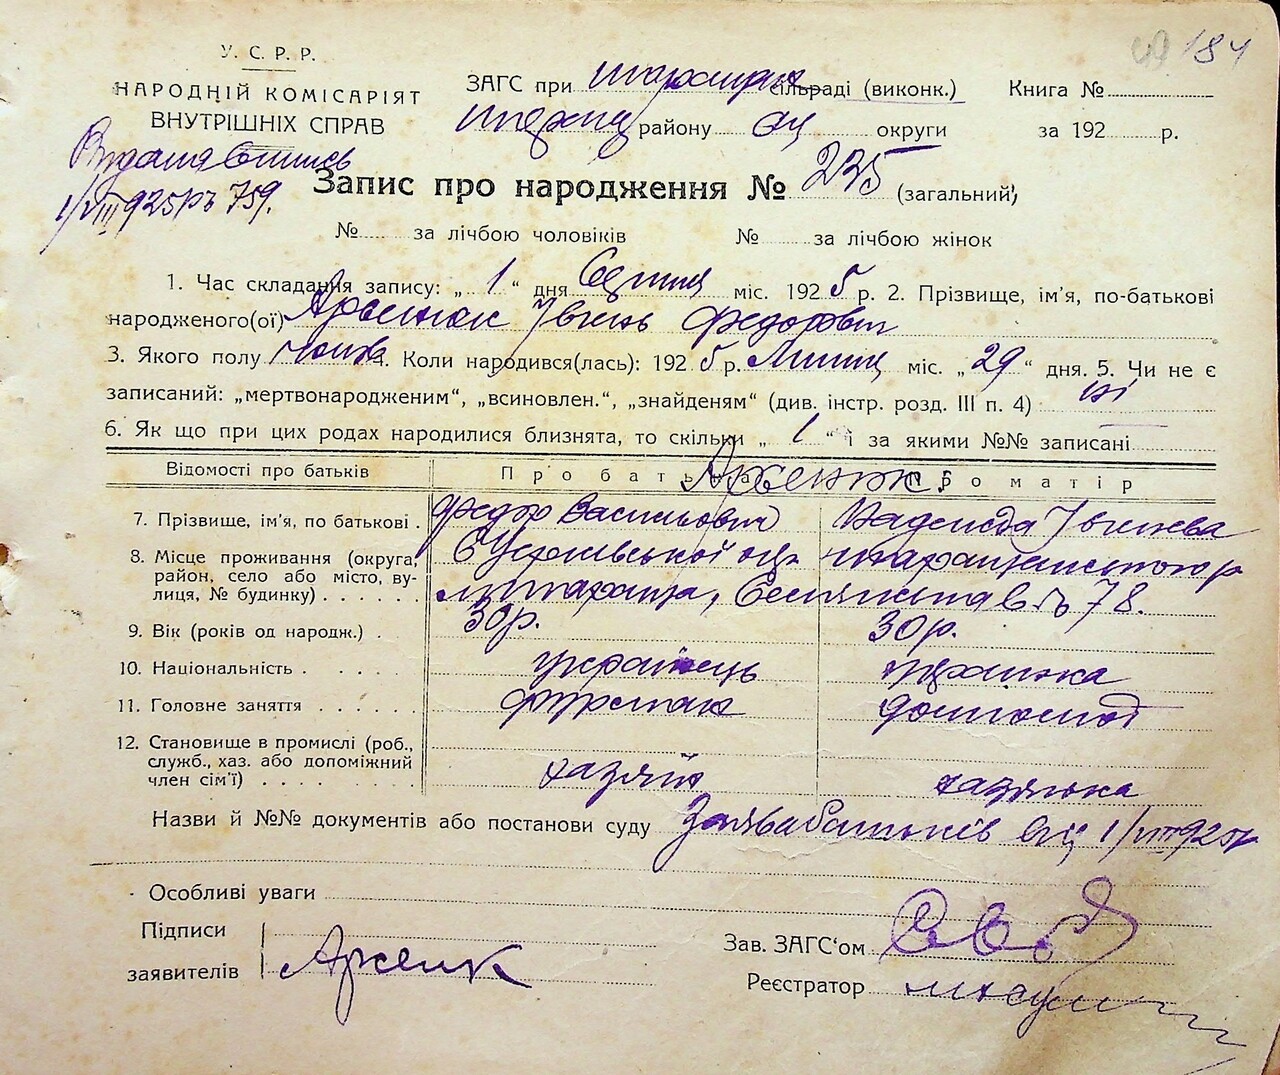 184
У. С. Р. Р.
НАРОДНІЙ КОМІСАРІЯТ
ВНУТРІШНІХ СПРАВ
ЗАГС при сільраді (виконк.)
району округи
Книга №
за 192 р.
1/VIII 925 р. № 759.
Запис про народження № 235 (загальний)
№ за лічбою чоловіків № за лічбою жінок
1. Час складання запису: „ 1 “ дня Серпня міс. 192 5 р. 2. Прізвище, ім'я, по-батькові
народженого(ої) Арсенюк Івгень Федорович
3. Якого полу 4. Коли народився(лась): 192 5 р. Липня міс. „ 29 “ дня. 5. Чи не є
записаний: „мертвонародженим“, „всиновлен.“, „знайденям“ (див. інстр. розд. III п. 4) ні
6. Як що при цих родах народилися близнята, то скільки „ 1 “ і за якими №№ записані
Відомості про батьків Про батька Про матір
Арсенюк
7. Прізвище, ім'я, по батькові . Федор Васильович Надежда Івгенева
8. Місце проживання (округа,
район, село або місто, ву-
лиця, № будинку) . . . . . . 78.
9. Вік (років од народж.) . 30 р. 30 р.
10. Національність . . . . українець українка
11. Головне заняття . . . . . . фурман
12. Становище в промислі (роб.,
служб., хаз. або допоміжний
член сім'ї) . . . . . . . . хазяїн хазяйка
Назви й №№ документів або постанови суду Заява батьків від 1/VIII 925 р.
Особливі уваги
Підписи
заявителів Арсенюк
Зав. ЗАГС‘ом
Реєстратор